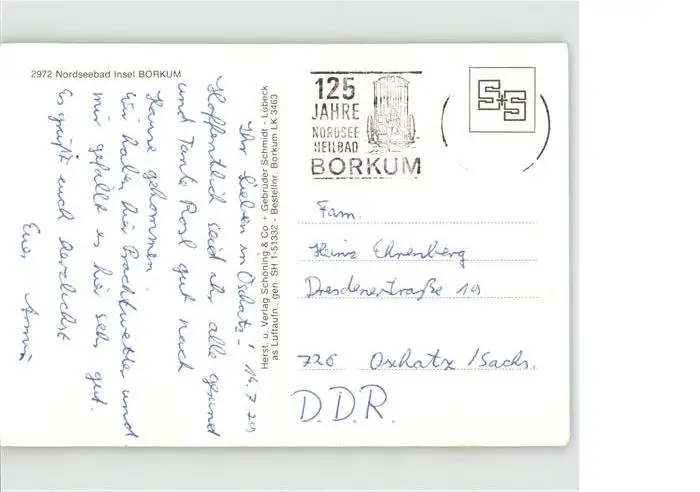 2972 Nordseebad Insel BORKUM
Ihr Lieben in Oschatz! 14.7.
Hoffentlich seid ihr alle gesund
und Tante Rosl gut nach
Hause gekommen.
Wir haben hier Prachtwetter und
mir gefällt es hier sehr gut.
Es grüßt euch herzlichst
Euer Armin
Herst. u. Verlag Schöning & Co + Gebrüder Schmidt - Lübeck
as Luftaufn., gen. SH 1-51332 - Bestellnr. Borkum LK 3463
125
JAHRE
NORDSEE
HEILBAD
BORKUM
S+S
Fam.
Heinz Ehrenberg
Dresdenerstraße 19
726 Oschatz /Sachs.
D.D.R.